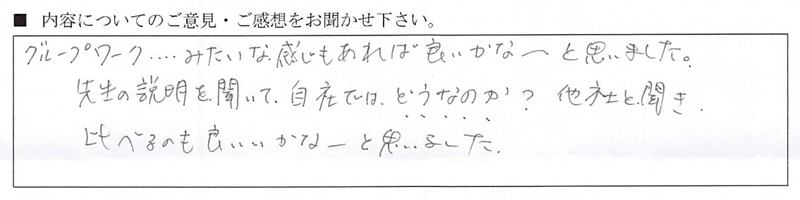 ■ 内容についてのご意見・ご感想をお聞かせ下さい。
グループワーク‥‥みたいな感じもあれば良いかなーと思いました。
先生の説明を聞いて、自社では、どうなのか? 他社と聞き
比べるのも良いいかなーと思いました。